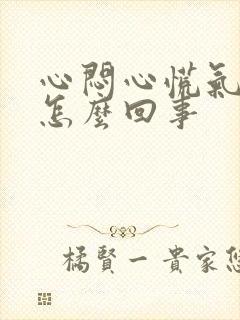 心悶心慌氣
怎麼回事
橘賢一貴家您